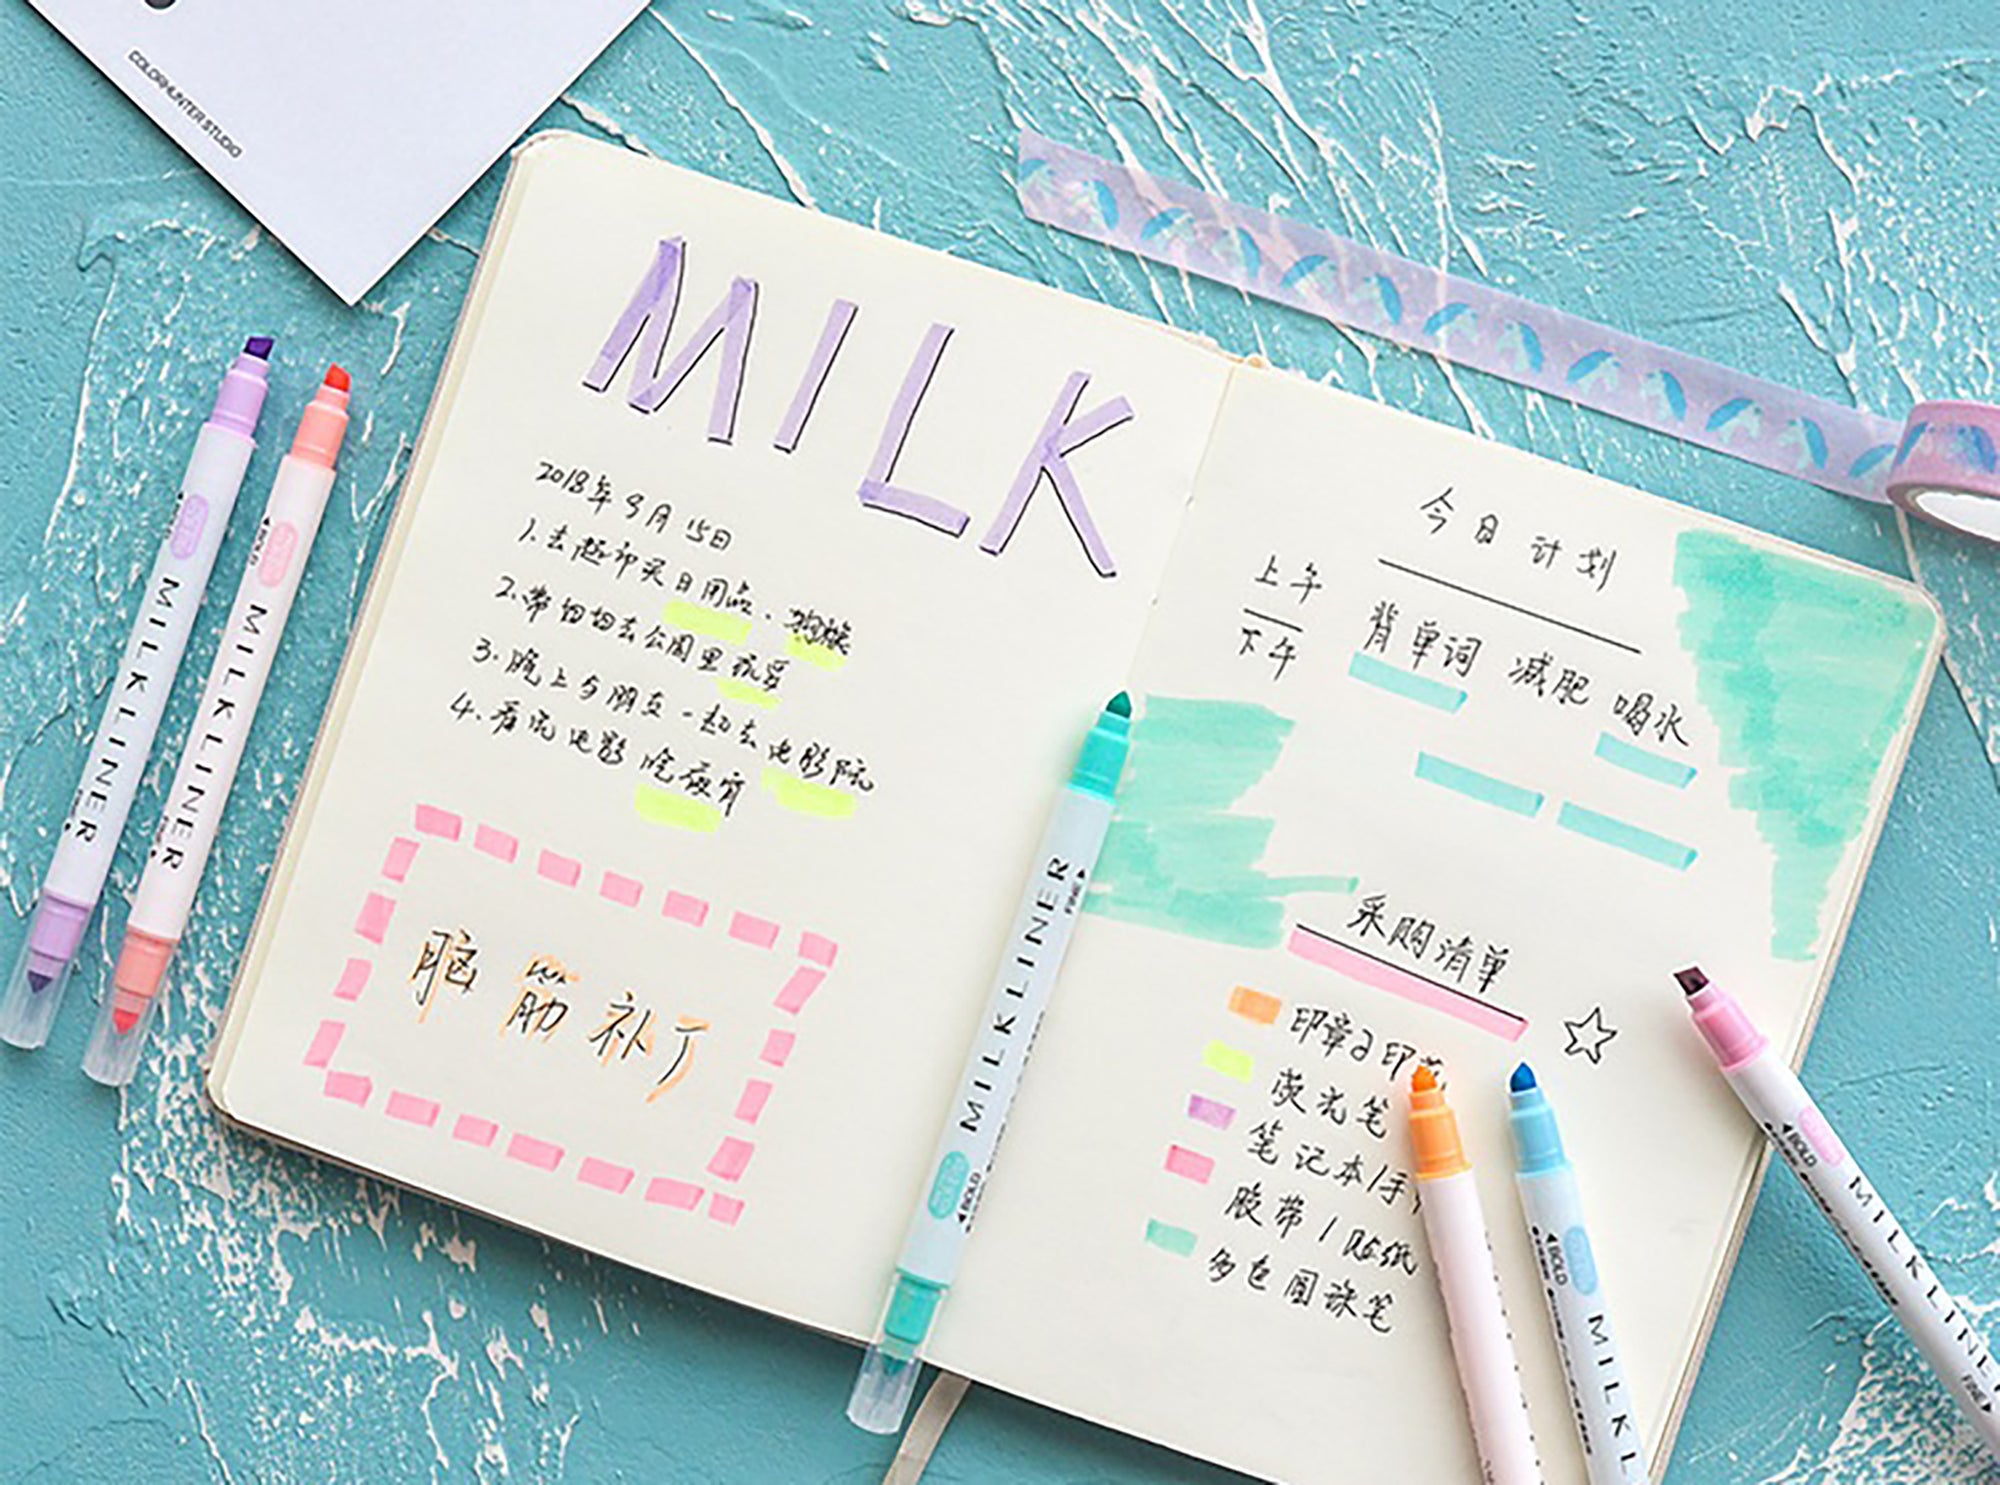 COLORHUNTER STUDIO
MILK
2018年9月15日
1. 去超市买日用品、狗粮
2. 带妞妞去公园里玩耍
3. 晚上与朋友一起去电影院
4. 看完电影吃夜宵
脑筋补丁
今日计划
上午
下午
背单词 减肥 喝水
采购清单
印章2印花
荧光笔
笔记本/手
胶带/贴纸
多色圆珠笔
MILKLINER
MILKLINER
BOLD
MILKLINER
FINE
BOLD
BOLD
MILKL
BOLD
MILKLINER
FINE